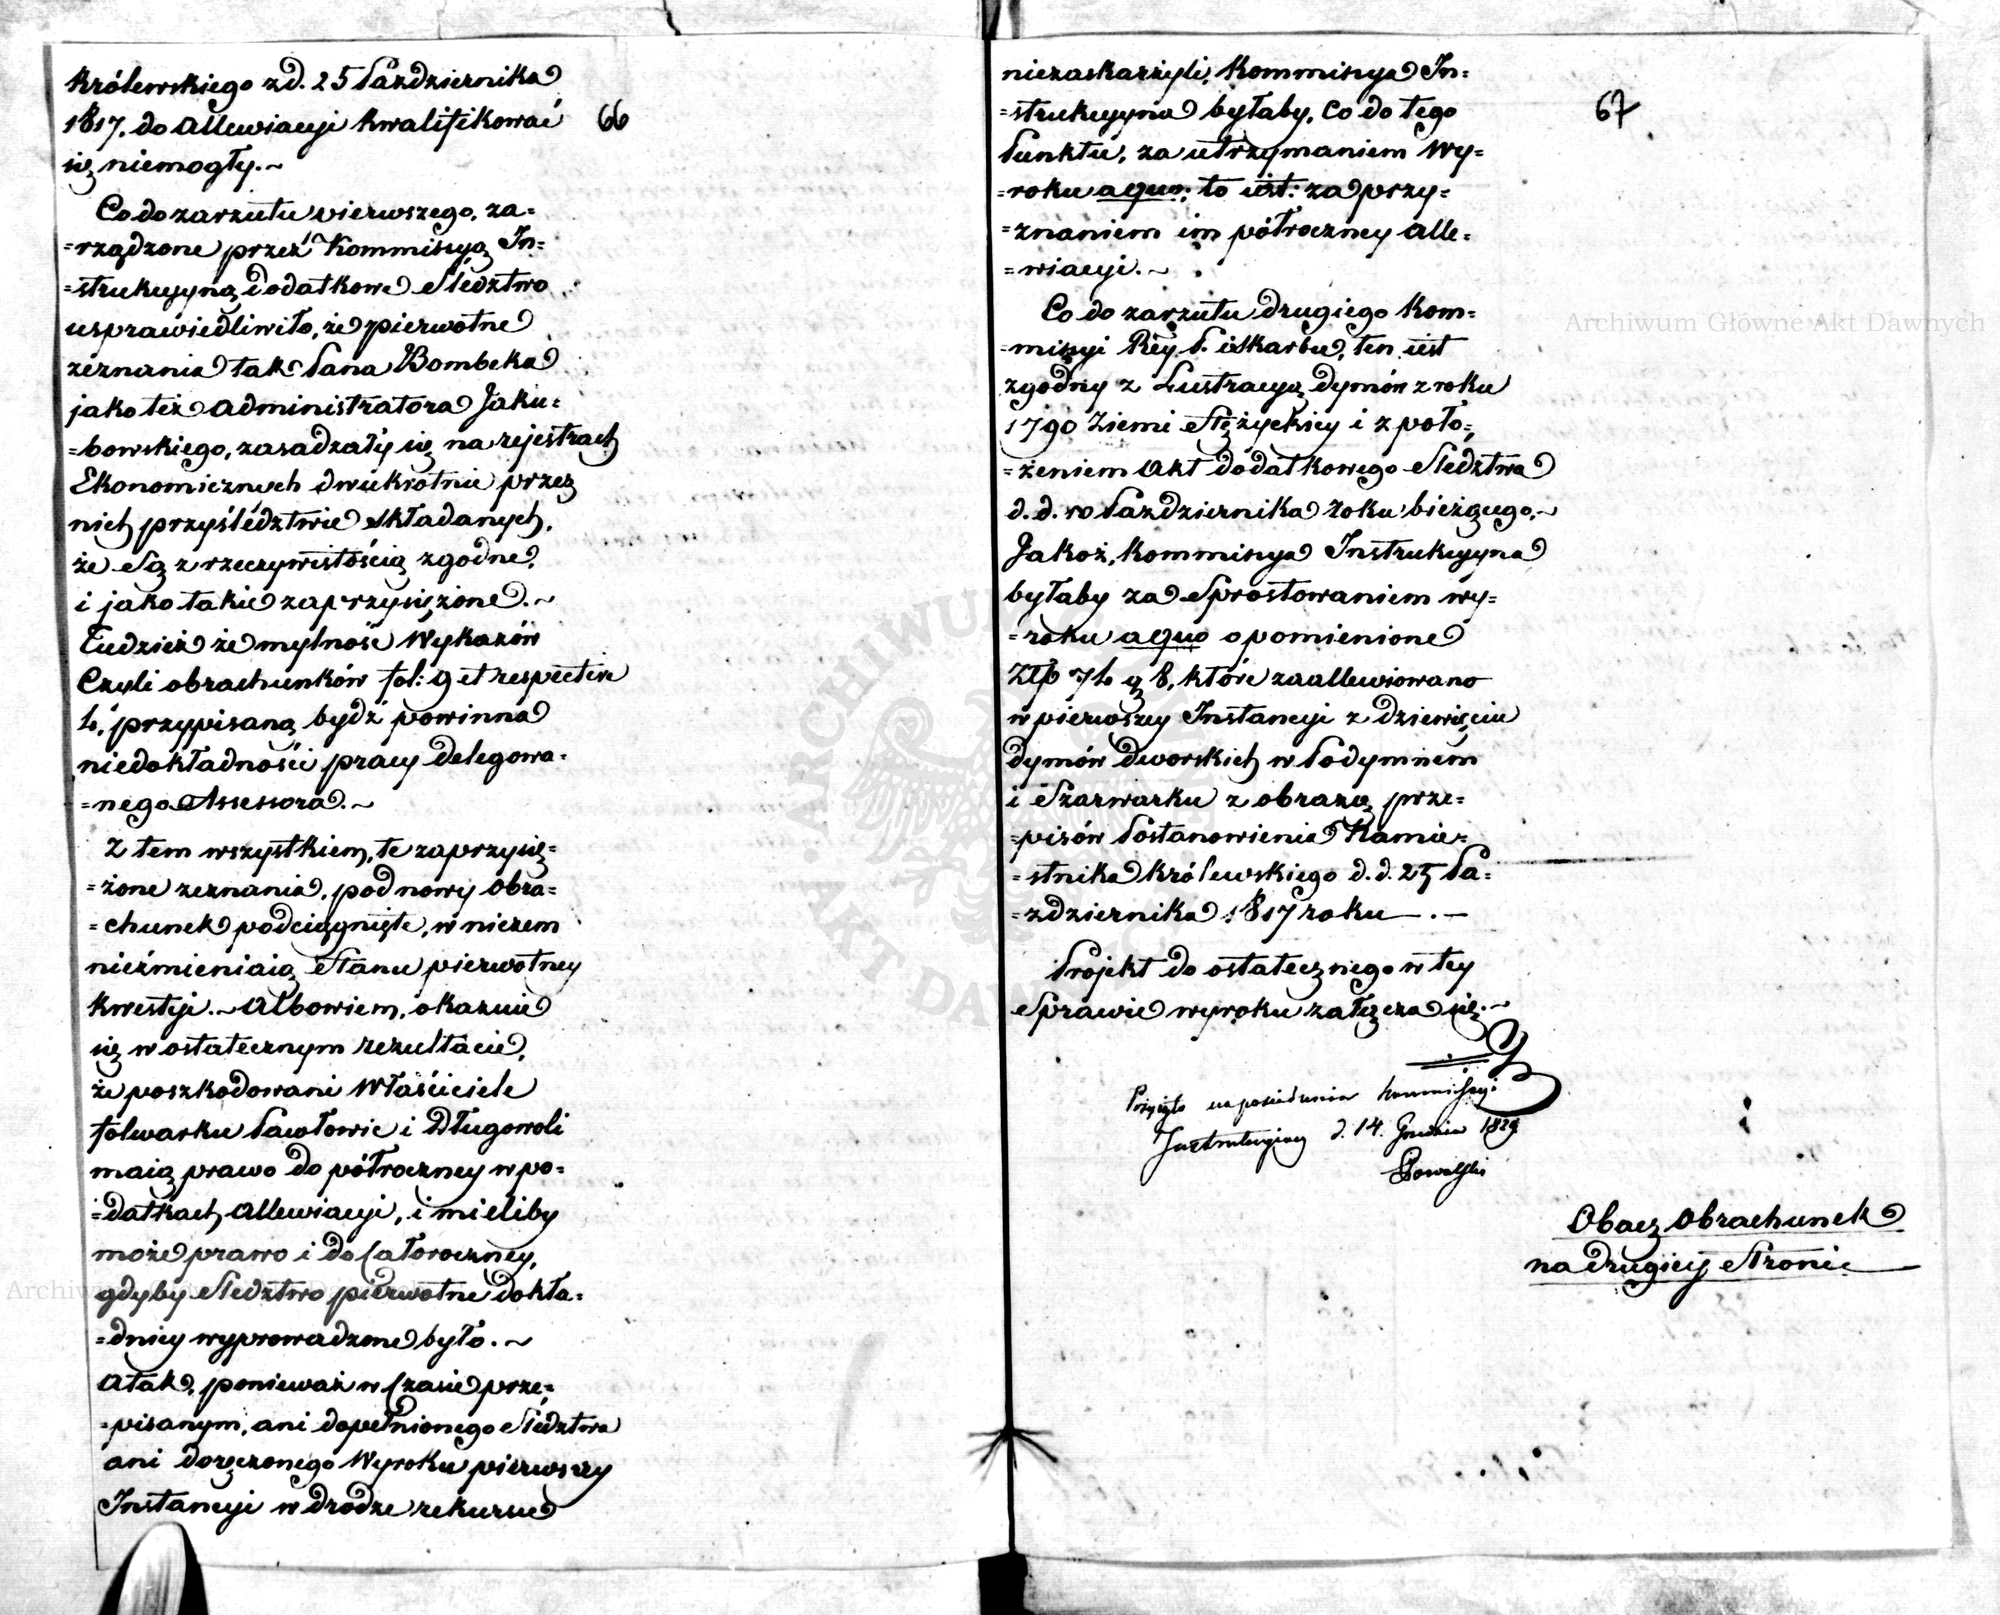 Królewskiego z d. 25 Października
1817. do Allewiacyi kwalifikować
się niemogły.~
66
Co do zarzutu pierwszego, za=
=rządzone przez Kommissyą In=
=strukcyyną dodatkowe Sledztwo
usprawiedliwiło, że pierwotne
zeznania tak Pana Bombeka
jako też Administratora Jaku=
=bowskiego, zasadzały się na rejestrach
Ekonomicznych dwukrotnie przez
nich przy śledztwie składanych,
że Są z rzeczywistością zgodne,
i jako takie zaprzysiężone.~
Tudzież że mylność Wykazów
Czyli obrachunków fol: 9 et respective
4, przypisaną bydź powinna
niedokładności pracy delegowa=
=nego Assessora.~
Z tem wszystkiem, te zaprzysię=
=żone zeznania, pod nowy obra=
=chunek podciągnięte, w niczem
niezmieniaią Stanu pierwotney
kwestyi.~ Albowiem, okazuie
się w ostatecznym rezultacie,
że poszkodowani Właściciele
folwarku Pawłowic i Długowoli
maią prawo do półroczney w po=
=datkach Allewiacyi, i mieliby
może prawo i do Całoroczney,
gdyby Sledztwo pierwotne dokła=
=dniey wyprowadzone było.~
Atak, ponieważ w Czasie prze=
=pisanym, ani dopełnionego Sledztwa
ani doręczonego Wyroku pierwszey
Instancyi w drodze rekursu
niezaskarżyli, Kommissya In=
=strukcyyna byłaby, Co do tego
Punktu, za utrzymaniem Wy=
=roku a quo; to iest: za przy=
=znaniem im półroczney Alle=
=wiacyi.~
67
Co do zarzutu drugiego Kom=
=missyi Rzą P. i Skarbu, ten iest
zgodny z Lustracyą dymów z roku
1790 Ziemi Stężyckiey i z poło=
=żeniem Akt dodatkowego Sledztwa
d. d. 10 Października roku bieżącego.~
Jakoż, Kommissya Instrukcyyna
byłaby za Sprostowaniem wy=
=roku a quo o pomienione
Złp 74 g 8, które zaallewiowano
w pierwszey Instancyi z dziewięciu
dymów dworskich w Podymnem
i Szarwarku z obrazą prze=
=pisów Postanowienia Namie=
=stnika Królewskiego d. d. 25 Pa=
=zdziernika 1817 roku—.—
Projekt do ostatecznego w tey
Sprawie wyroku załącza się.~
Przyięto na posiedzeniu Kommissyi
Instrukcyiney d. 14. Grudnia 1829
Kowalski
Obacz Obrachunek
na drugiey Stronie
Archiwum Główne Akt Dawnych